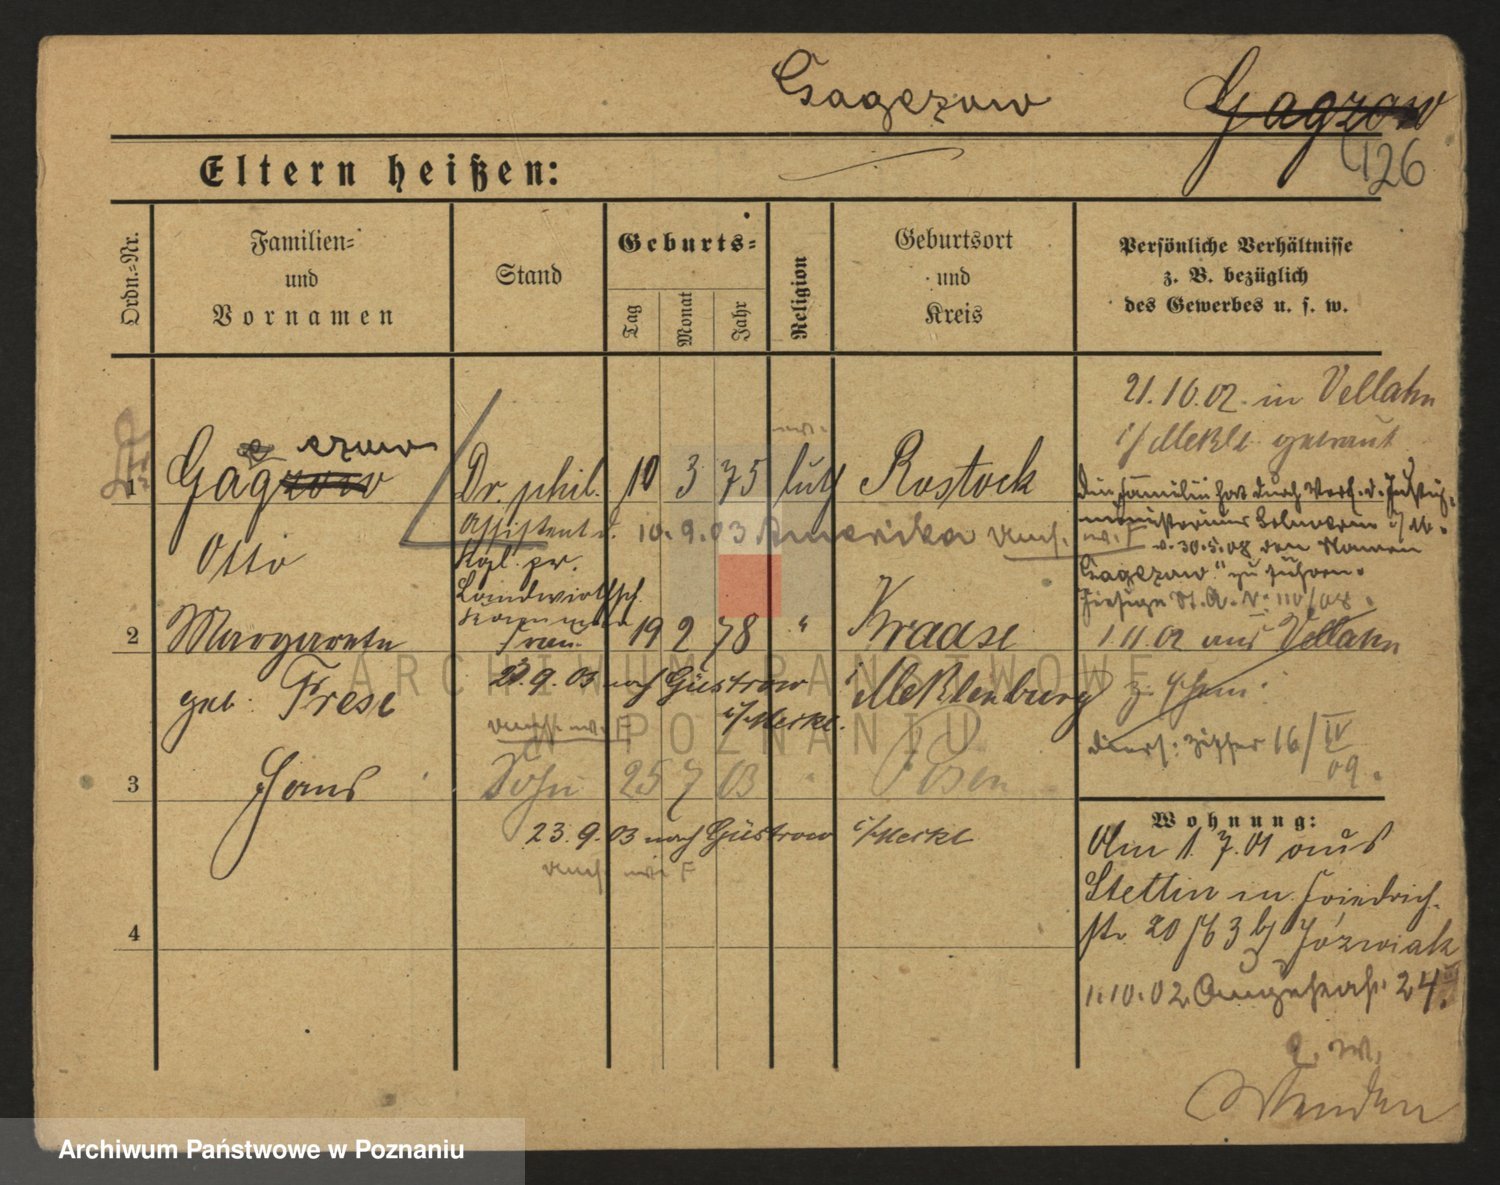 Gagezow Gagzow
126
Eltern heißen:
Ordn.=Nr.
Familien=
und
Vornamen
Stand
Geburts=
Tag
Monat
Jahr
Religion
Geburtsort
und
Kreis
Persönliche Verhältnisse
z. B. bezüglich
des Gewerbes u. s. w.
21.10.02 in Vellahn
i/Meckl getraut
1 Gagzow ezow Dr. phil. 10 3 75 luth Rostock
Otto
Assistent d.
Kgl. pr.
Landwirtsch.
10.9.03 Amerika
Die Familie hat durch Verf. d. Justiz-
ministeriums
v. 30.5.08 den Namen
"Gagezow" zu führen.
110/08.
2 Margarete Frau 19 2 78 " Kraase
geb. Frese
i/Mecklenburg
23.9.03 nach Güstrow
i/Meckl.
1.11.02 aus Vellahn
16/IV
09.
3 Hans Sohn 25 7 03 " Posen
23.9.03 nach Güstrow i/Meckl
4
Wohnung:
Am 1.7.01 aus
Stettin in Friedrich-
str 20 b/ Józwiak
1.10.02 Augustastr. 24
ARCHIWUM PAŃSTWOWE
W POZNANIU
Archiwum Państwowe w Poznaniu